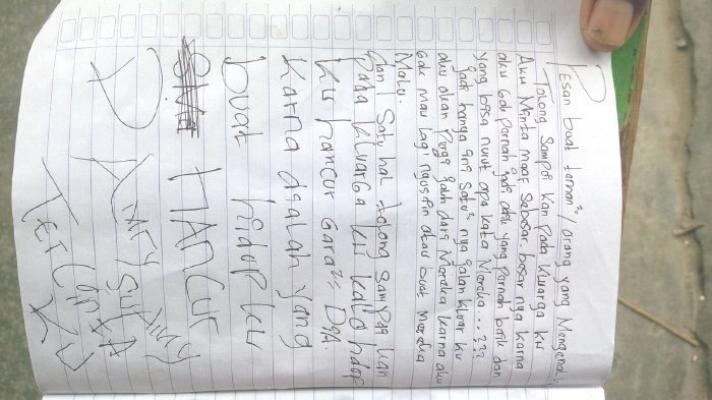 Pesan buat teman²/orang yang Mengenal
Tolong Sampai kan pada kluarga ku
Aku Minta maaf sebesar besar nya karna
aku Gak pernah jadi anak yang pernah baik dan
yang bisa nurut apa kata Mereka...???
jadi hanya ini satu² nya jalan kluar ku
aku akan Pergi jauh dari Mereka karna aku
Gak mau lagi atau buat mereka
Malu.
dan 1 Satu hal tolong sampai kan
pada kluarga ku kalo hidup
ku hancur Gara² Dya.
Karna dialah yang
buat hidup ku
HANCUR
TERCINTA